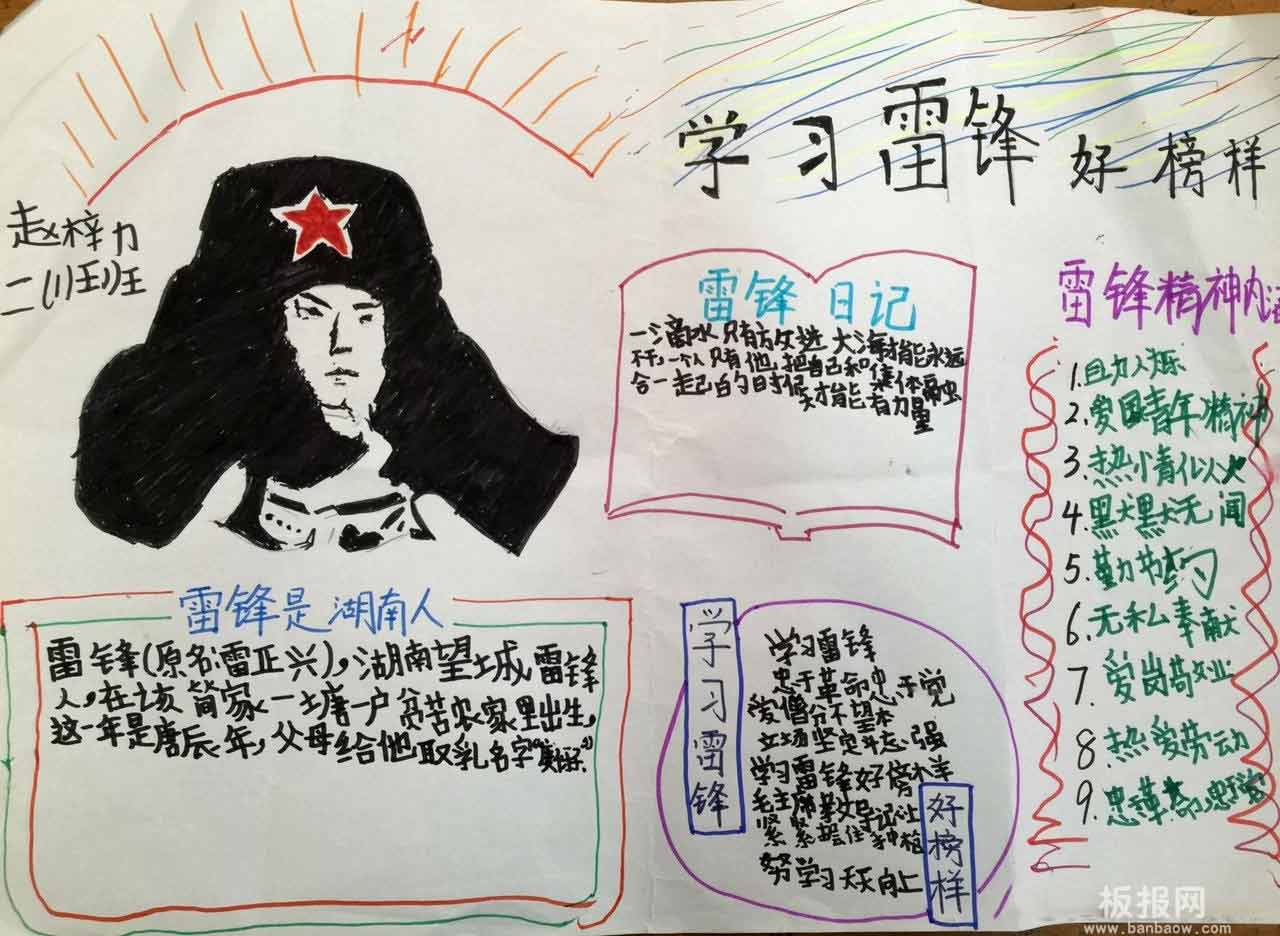 学习雷锋好榜样
赵梓力
二(1)班
雷锋日记
一滴水只有放进大海才能永远
不干,一个人只有他把自己和集体融
合一起的时候才能有力量
雷锋精神内
1.助人为乐
2.爱国青年精神
3.热情似火
4.默默无闻
5.勤学习
6.无私奉献
7.爱岗敬业
8.热爱劳动
9.忠革命忠
雷锋是湖南人
雷锋(原名雷正兴),湖南望城雷锋
人,在该简家一塘一户贫苦农家里出生,
这一年是唐辰年,父母给他取乳名字
学习雷锋
学习雷锋
忠于革命忠于党
爱憎分不望本
立场坚定斗志强
学习雷锋好榜样
毛主席教导记心上
紧紧握住手中枪
努学习天天向上
好榜样
板报网
www.banbaow.com